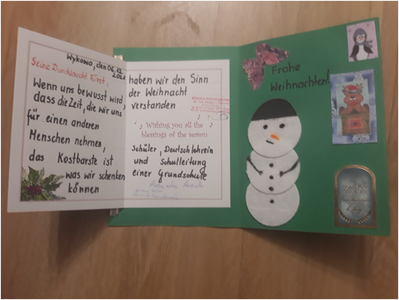 Wykowo, den 06.12.
Wenn uns bewusst wird,
dass die Zeit, die wir uns
für einen anderen
Menschen nehmen,
das Kostbarste ist
was wir schenken
können
haben wir den Sinn
der Weihnacht
verstanden
Wishing you all the
blessings of the season
Schüler, Deutschlehrerin
und Schulleitung
einer Grundschule
Frohe
Weihnachten!